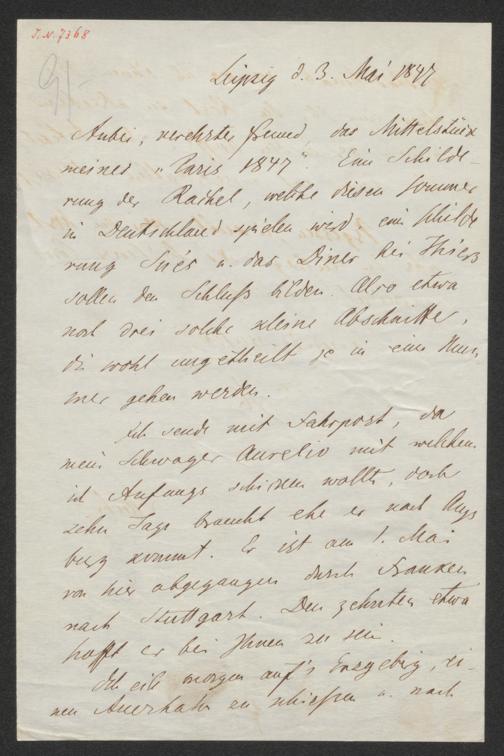 I.N. 7368
Leipzig d. 3. Mai 1847
Anbei, verehrter Freund, das Mittelstück
meines „Paris 1847" Eine Schilde-
rung der Rachel, welche diesen Sommer
in Deutschland spielen wird eine Schilde
rung Sue's u. das Diner bei Thiers
sollen den Schluß bilden. Also etwa
noch drei solche kleine Abschnitte,
die wohl ungetheilt je in eine Num
mer gehen werden.
Ich sende mit Fahrpost, da
mein Schwager Aurelio mit welchem
ich Anfangs schicken wollte, doch
zehn Tage braucht ehe er nach Augs
burg kommt. Er ist am 1. Mai
von hier abgegangen durch Franken
nach Stuttgart. Den zehnten etwa
hofft er bei Ihnen zu sein.
Ich eile morgen auf's Erzgebirg, ei-
nen Auerhahn zu schießen u. nach